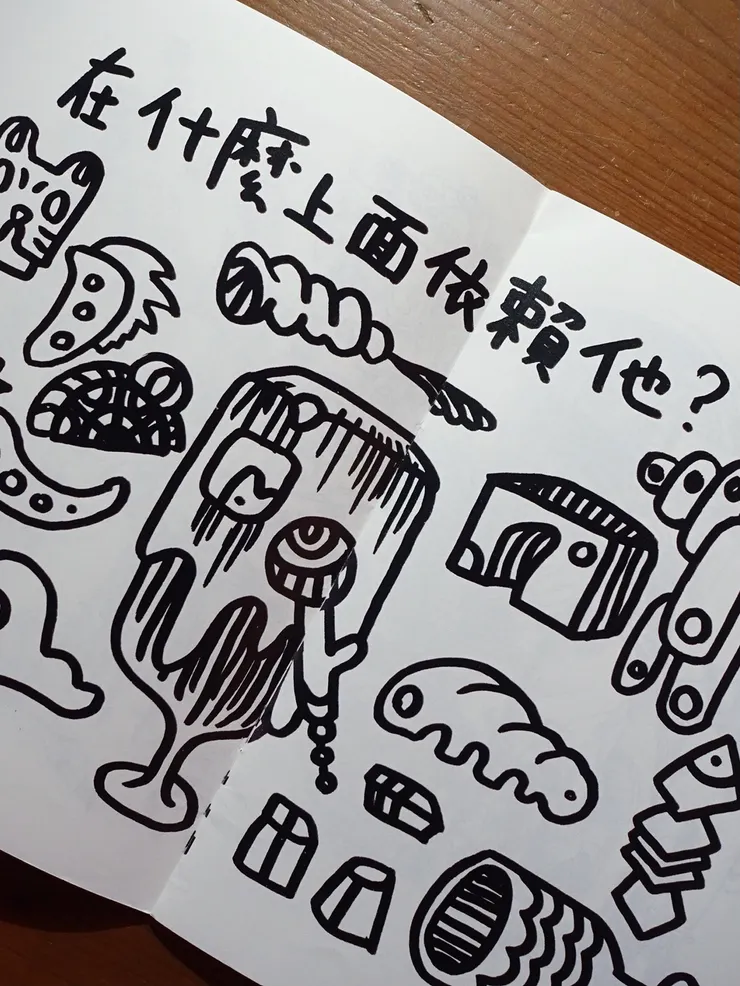 在什麼上面依賴他？